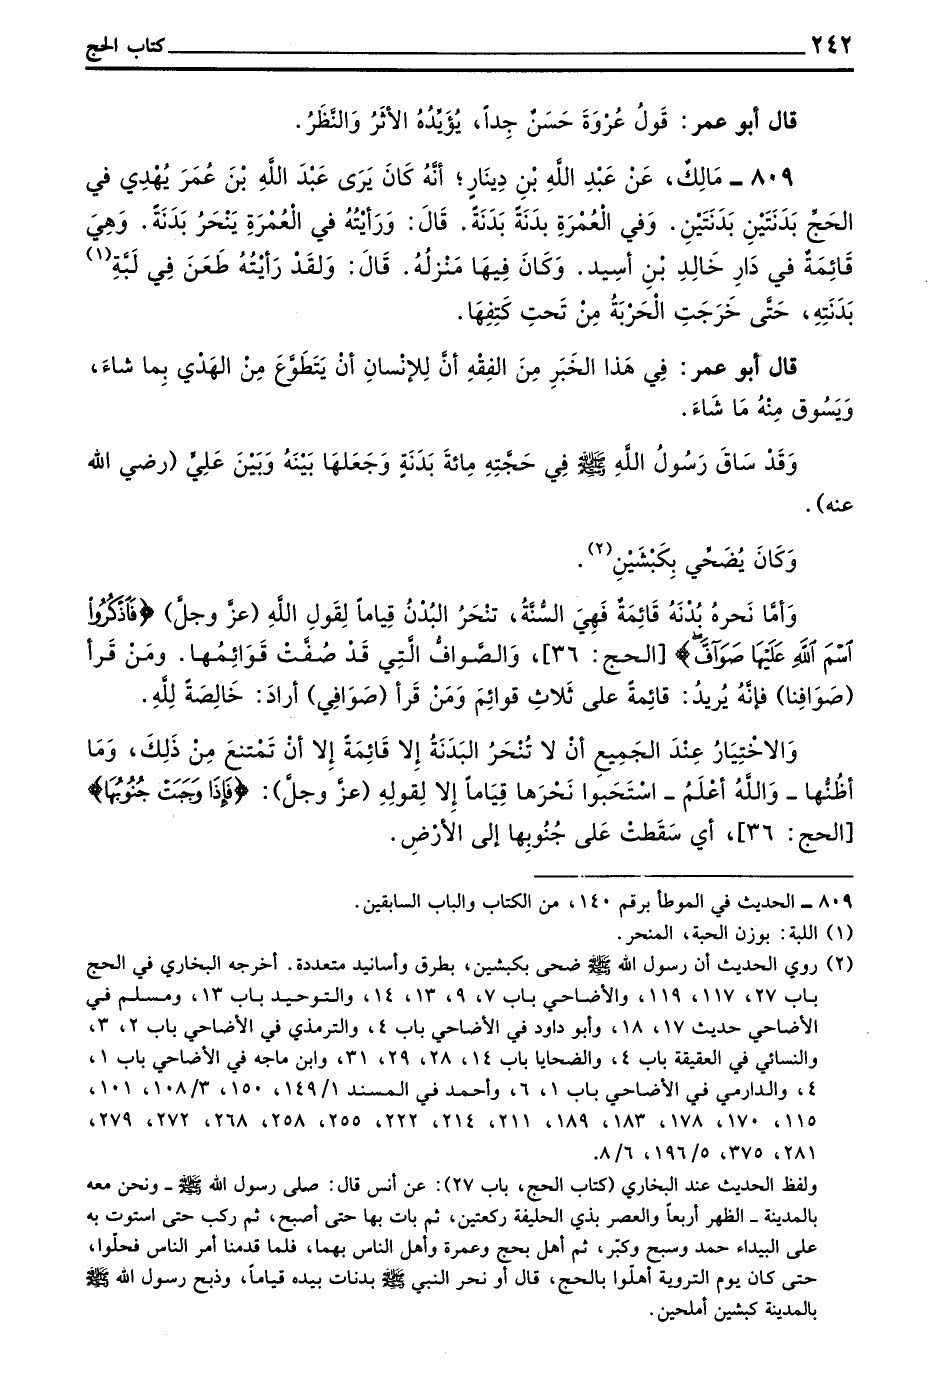 ٢٤٢ كتاب الحج
قال أبو عمر: قَولُ عُرْوَةَ حَسَنٌ جِداً، يُؤَيِّدُهُ الأثَرُ وَالنَّظَرُ.
٨٠٩ ـ مَالِكٌ، عَنْ عَبْدِ اللَّهِ بْنِ دِينَارٍ؛ أنَّهُ كَانَ يَرَى عَبْدَ اللَّهِ بْنَ عُمَرَ يُهْدِي في
الحَجِّ بَدَنَتَيْنِ بَدَنَتَيْنِ. وَفي الْعُمْرَةِ بدَنَةً بَدَنَةً. قَالَ: وَرَأيْتُهُ في الْعُمْرَةِ يَنْحَرُ بَدَنَةً. وَهِيَ
قَائِمَةٌ في دَارِ خَالِدِ بْنِ أسِيد. وَكَانَ فِيهَا مَنْزِلُهُ. قَالَ: وَلَقَدْ رَأيْتُهُ طَعَنَ فِي لَبَّةِ(١)
بَدَنَتِهِ، حَتَّى خَرَجَتِ الْحَرْبَةُ مِنْ تَحتِ كَتِفِهَا.
قال أبو عمر: فِي هَذَا الخَبَرِ مِنَ الفِقْهِ أنَّ لِلإنْسانِ أنْ يَتَطَوَّعَ مِنَ الهَدْي بِما شاءَ،
وَيَسُوق مِنْهُ مَا شَاءَ.
وَقَدْ سَاقَ رَسُولُ اللَّهِ ﷺ فِي حَجَّتِهِ مِائةَ بَدَنَةٍ وَجَعَلهَا بَيْنَهُ وَبَيْنَ عَلِيٍّ (رضي الله
عنه).
وَكَانَ يُضَحِّي بِكَبْشَيْنِ(٢).
وَأمَّا نَحرهُ بُدْنَهُ قَائِمَةٌ فَهِيَ السُّنَّةُ، تنْحَرُ البُدْنُ قِياماً لِقَولِ اللَّهِ (عزَّ وجلَّ) ﴿فَٱذۡكُرُواْ
ٱسۡمَ ٱللَّهِ عَلَيۡهَا صَوَآفَّۖ﴾ [الحج: ٣٦]، وَالصَّوافُّ الَّتِي قَدْ صُفَّتْ قَوَائِمُها. ومَنْ قَرأَ
(صَوَافِنا) فإنَّهُ يُريدُ: قائِمةً على ثَلاثِ قوائِمَ وَمَنْ قَرأ (صَوَافِي) أرادَ: خَالِصَةً للهِ.
وَالاخْتِيَارُ عِنْدَ الجَمِيعِ أنْ لا تُنْحَرُ البَدَنَةُ إلا قَائِمَةً إلا أنْ تَمْتنعَ مِنْ ذَلِكَ، وَمَا
أظُنُّها ـ وَاللَّهُ أعْلَمُ ـ اسْتَحَبوا نَحْرَها قِيَاماً إلا لِقولِهِ (عزَّ وجلَّ): ﴿فَإِذَا وَجَبَتۡ جُنُوبُهَا﴾
[الحج: ٣٦]، أي سَقَطتْ عَلى جُنُوبِها إلى الأرْضِ.
٨٠٩ ـ الحديث في الموطأ برقم ١٤٠، من الكتاب والباب السابقين.
(١) اللبة: بوزن الحبة، المنحر.
(٢) روي الحديث أن رسول الله ﷺ ضحى بكبشين، بطرق وأسانيد متعددة. أخرجه البخاري في الحج
باب ٢٧، ١١٧، ١١٩، والأضاحي باب ٧، ٩، ١٣، ١٤، والتوحيد باب ١٣، ومسلم في
الأضاحي حديث ١٧، ١٨، وأبو داود في الأضاحي باب ٤، والترمذي في الأضاحي باب ٢، ٣،
والنسائي في العقيقة باب ٤، والضحايا باب ١٤، ٢٨، ٢٩، ٣١، وابن ماجه في الأضاحي باب ١،
٤، والدارمي في الأضاحي باب ١، ٦، وأحمد في المسند ١/١٤٩، ١٥٠، ٣/١٠٨، ١٠١،
١١٥، ١٧٠، ١٧٨، ١٨٣، ١٨٩، ٢١١، ٢١٤، ٢٢٢، ٢٥٥، ٢٥٨، ٢٦٨، ٢٧٢، ٢٧٩،
٢٨١، ٣٧٥، ٥/١٩٦، ٦/٨.
ولفظ الحديث عند البخاري (كتاب الحج، باب ٢٧): عن أنس قال: صلى رسول الله ﷺ ـ ونحن معه
بالمدينة ـ الظهر أربعاً والعصر بذي الحليفة ركعتين، ثم بات بها حتى أصبح، ثم ركب حتى استوت به
على البيداء حمد وسبح وكبّر، ثم أهل بحج وعمرة وأهل الناس بهما، فلما قدمنا أمر الناس فحلّوا،
حتى كان يوم التروية أهلّوا بالحج، قال أو نحر النبي ﷺ بدنات بيده قياماً، وذبح رسول الله ﷺ
بالمدينة كبشين أملحين.